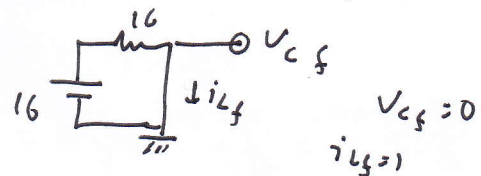 16
V_Cf
16
↓i_Lf
V_Cf = 0
i_Lf = 1